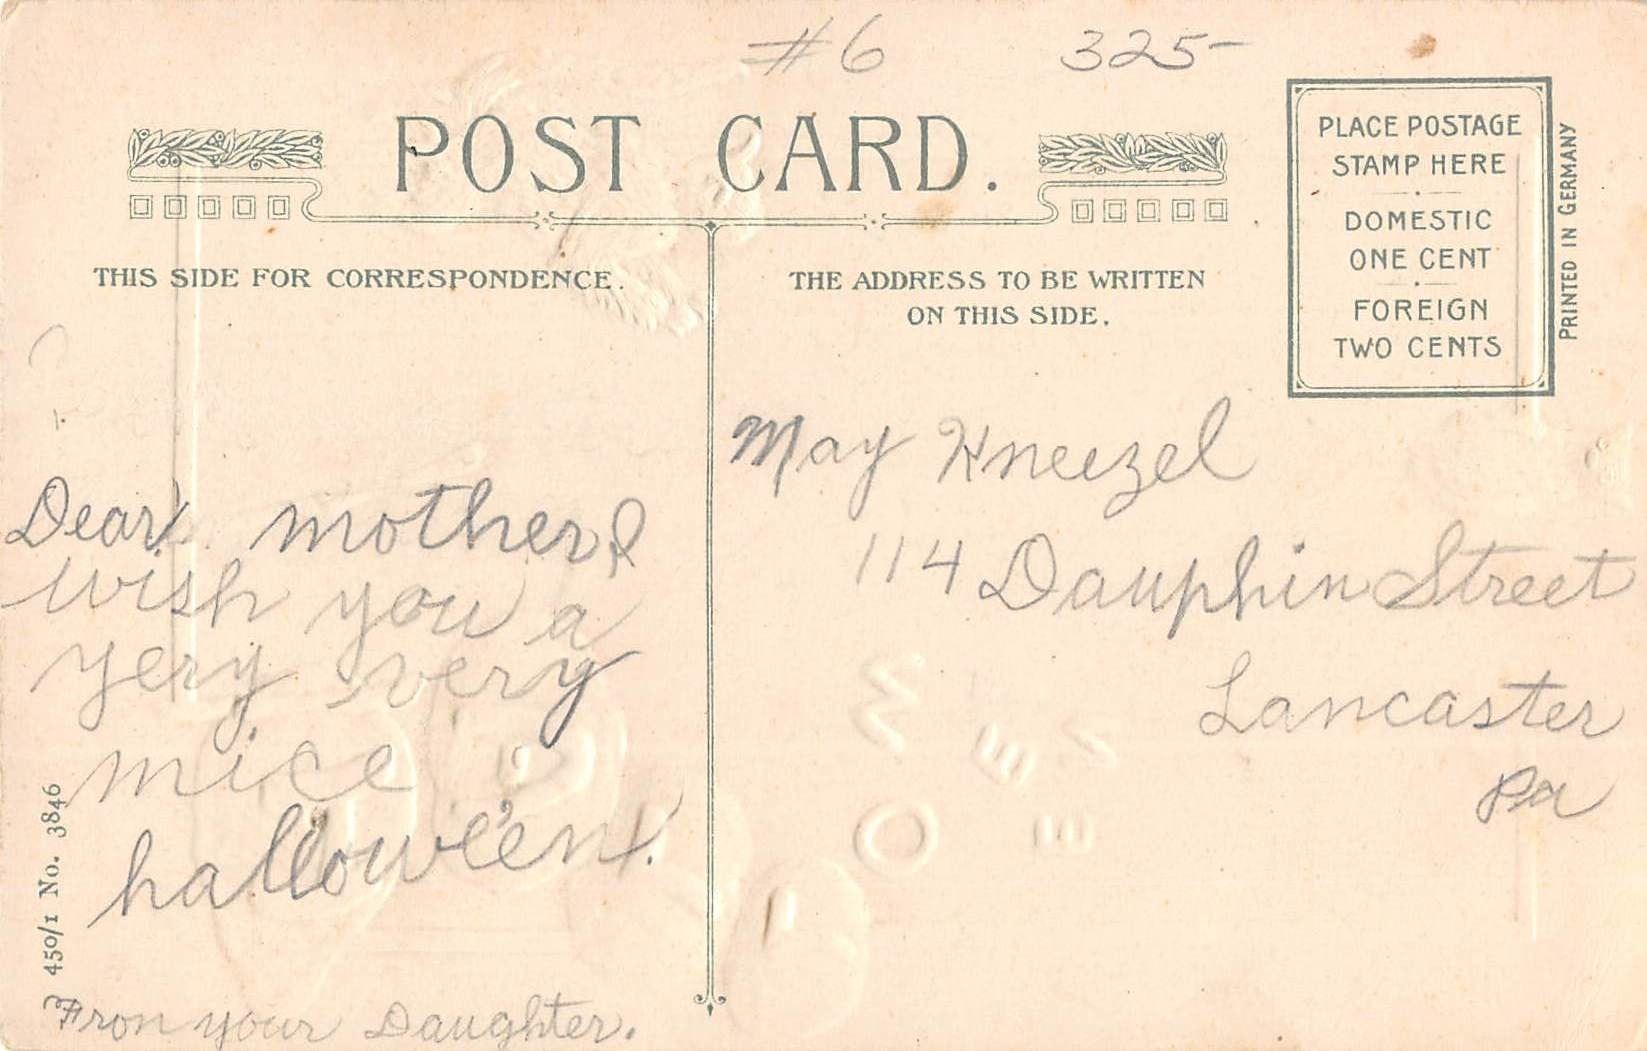 #6 325-
POST CARD.
THIS SIDE FOR CORRESPONDENCE.
THE ADDRESS TO BE WRITTEN
ON THIS SIDE.
PLACE POSTAGE
STAMP HERE
DOMESTIC
ONE CENT
FOREIGN
TWO CENTS
PRINTED IN GERMANY
Dear mother I
wish you a
very very
nice
hallowe'en.
From your Daughter.
450/1 No. 3846
May Kneezel
114 Dauphin Street
Lancaster
Pa